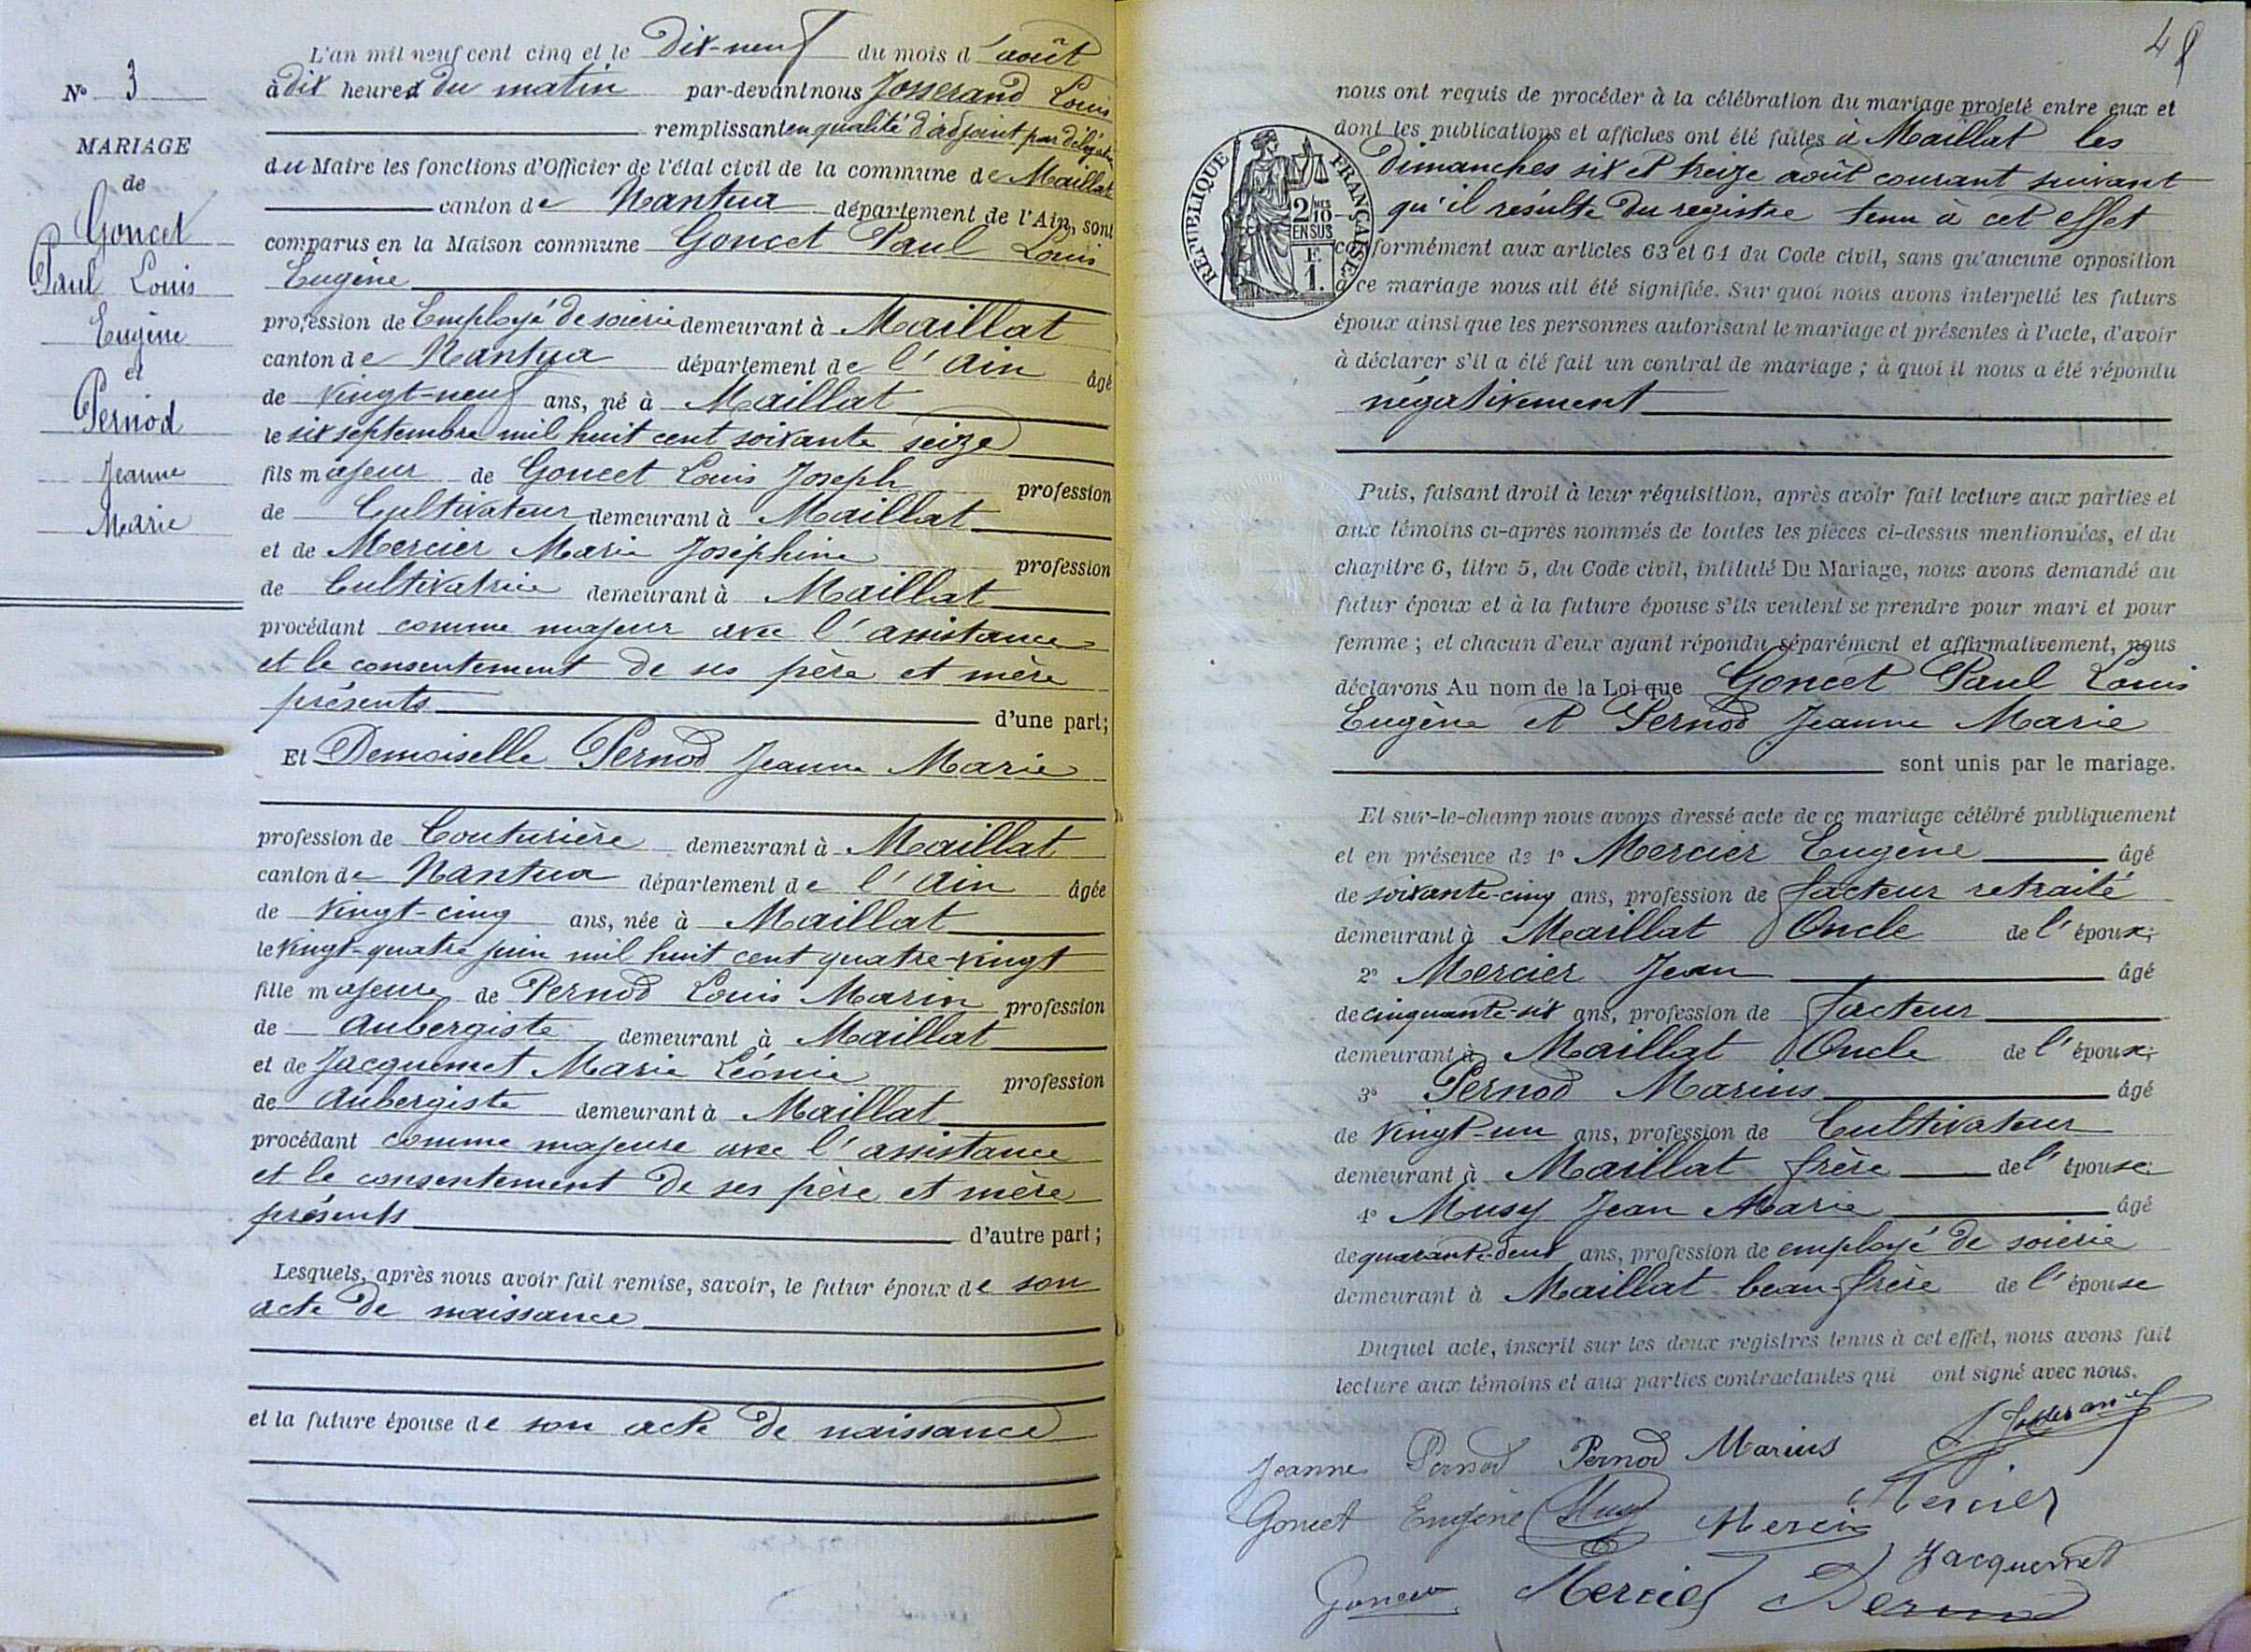 N° 3
MARIAGE
de
Goncet
Paul Louis
Eugène
et
Pernod
Jeanne
Marie
L'an mil neuf cent cinq et le Dix-neuf du mois d'août
à dix heures du matin par-devant nous Josserand Louis
remplissant en qualité d'adjoint par délégation
du Maire les fonctions d'Officier de l'état civil de la commune de Maillat
canton de Nantua département de l'Ain, sont
comparus en la Maison commune Goncet Paul Louis
Eugène
profession de Employé de soierie demeurant à Maillat
canton de Nantua département de l'Ain âgé
de vingt-neuf ans, né à Maillat
le six septembre mil huit cent soixante seize
fils majeur de Goncet Louis Joseph profession
de Cultivateur demeurant à Maillat
et de Mercier Marie Joséphine profession
de Cultivatrice demeurant à Maillat
procédant comme majeur avec l'assistance
et le consentement de ses père et mère
présents d'une part;
Et Demoiselle Pernod Jeanne Marie
profession de Couturière demeurant à Maillat
canton de Nantua département de l'Ain âgée
de vingt-cinq ans, née à Maillat
le vingt-quatre juin mil huit cent quatre-vingt
fille majeure de Pernod Louis Marin profession
de Aubergiste demeurant à Maillat
et de Jacquemet Marie Léonie profession
de Aubergiste demeurant à Maillat
procédant comme majeure avec l'assistance
et le consentement de ses père et mère
présents d'autre part;
Lesquels, après nous avoir fait remise, savoir, le futur époux de son
acte de naissance
et la future épouse de son acte de naissance
48
nous ont requis de procéder à la célébration du mariage projeté entre eux et
dont les publications et affiches ont été faites à Maillat les
dimanches six et treize août courant suivant
qu'il résulte du registre tenu à cet effet
RÉPUBLIQUE FRANÇAISE
2/10 MES
EN SUS
F.
1.
conformément aux articles 63 et 64 du Code civil, sans qu'aucune opposition
à ce mariage nous ait été signifiée. Sur quoi nous avons interpellé les futurs
époux ainsi que les personnes autorisant le mariage et présentes à l'acte, d'avoir
à déclarer s'il a été fait un contrat de mariage; à quoi il nous a été répondu
négativement
Puis, faisant droit à leur réquisition, après avoir fait lecture aux parties et
aux témoins ci-après nommés de toutes les pièces ci-dessus mentionnées, et du
chapitre 6, titre 5, du Code civil, intitulé Du Mariage, nous avons demandé au
futur époux et à la future épouse s'ils veulent se prendre pour mari et pour
femme; et chacun d'eux ayant répondu séparément et affirmativement, nous
déclarons Au nom de la Loi que Goncet Paul Louis
Eugène et Pernod Jeanne Marie
sont unis par le mariage.
Et sur-le-champ nous avons dressé acte de ce mariage célébré publiquement
et en présence de 1° Mercier Eugène âgé
de soixante-cinq ans, profession de facteur retraité
demeurant à Maillat Oncle de l'époux;
2° Mercier Jean âgé
de cinquante-six ans, profession de facteur
demeurant à Maillat Oncle de l'époux;
3° Pernod Marius âgé
de vingt-un ans, profession de Cultivateur
demeurant à Maillat frère de l'épouse;
4° Musy Jean Marie âgé
de quarante-deux ans, profession de employé de soierie
demeurant à Maillat beau-frère de l'épouse
Duquel acte, inscrit sur les deux registres tenus à cet effet, nous avons fait
lecture aux témoins et aux parties contractantes qui ont signé avec nous.
L Josserand
Jeanne Pernod Pernod Marius
Goncet Eugène Musy Mercier Mercier
Jacquemet
Goncet Mercier Pernod